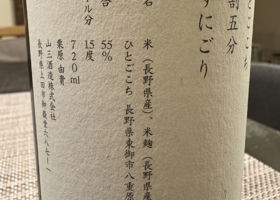 とごこち
割五分
すにごり
名
米(長野県産)、米麹(長野県産
ひとごこち 長野県東御市八重原
合 55%
ル分 15度
720ml
栗原由貴
山三酒造株式会社
長野県上田市御嶽堂687-1